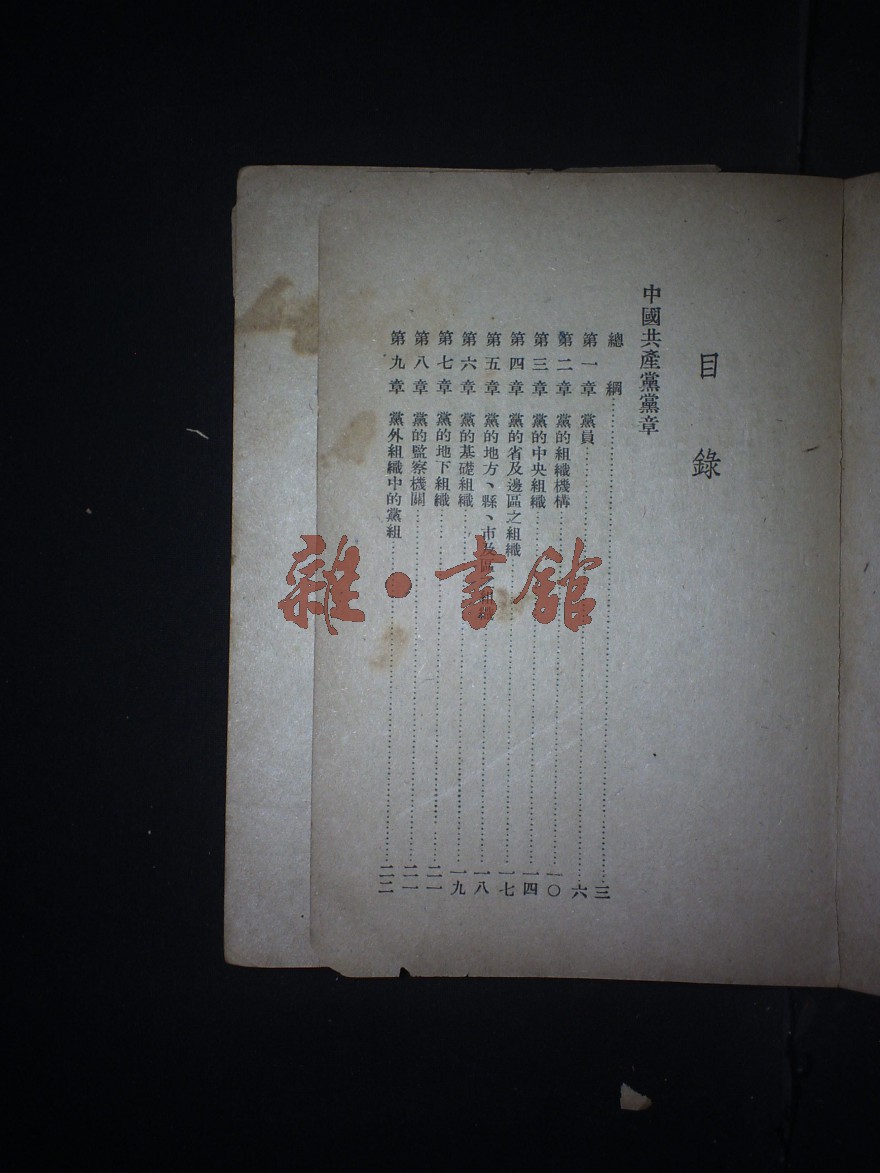 目錄
中國共產黨黨章
總綱……三
第一章 黨員……六
第二章 黨的組織機構……一〇
第三章 黨的中央組織……一四
第四章 黨的省及邊區之組織……一七
第五章 黨的地方、縣、市及區……一八
第六章 黨的基礎組織……一九
第七章 黨的地下組織……二一
第八章 黨的監察機關……二一
第九章 黨外組織中的黨組……二二
雜·書館